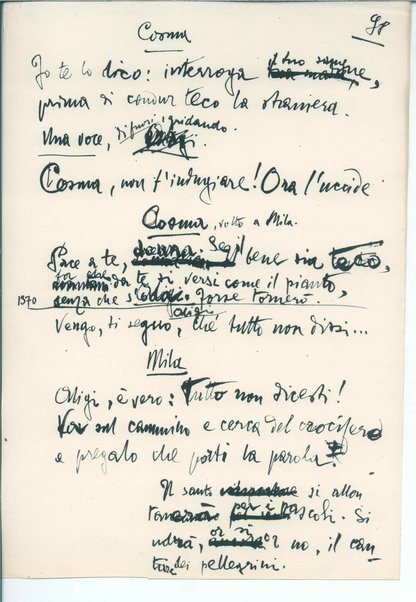 98
Cosma
Io te lo dico: interroga il tuo sangue,
prima di condur teco la straniera.
Una voce, di fuori, gridando.
Cosma, non t'indugiare! Ora l'uccide
Cosma, volto a Mila.
Pace a te, donna. Se il bene sia teco,
fa che da te si versi come il pianto,
senza che s'oda. Forse tornerò.
1370
Aligi
Vengo, ti seguo, ché tutto non dissi...
Mila
Aligi, è vero: Tutto non dicesti!
Va sul cammino e cerca del crocifero
e pregalo che porti la parola.
Il santo si allon
tana per i pascoli. Si
udrà, or sì or no, il can
tare dei pellegrini.